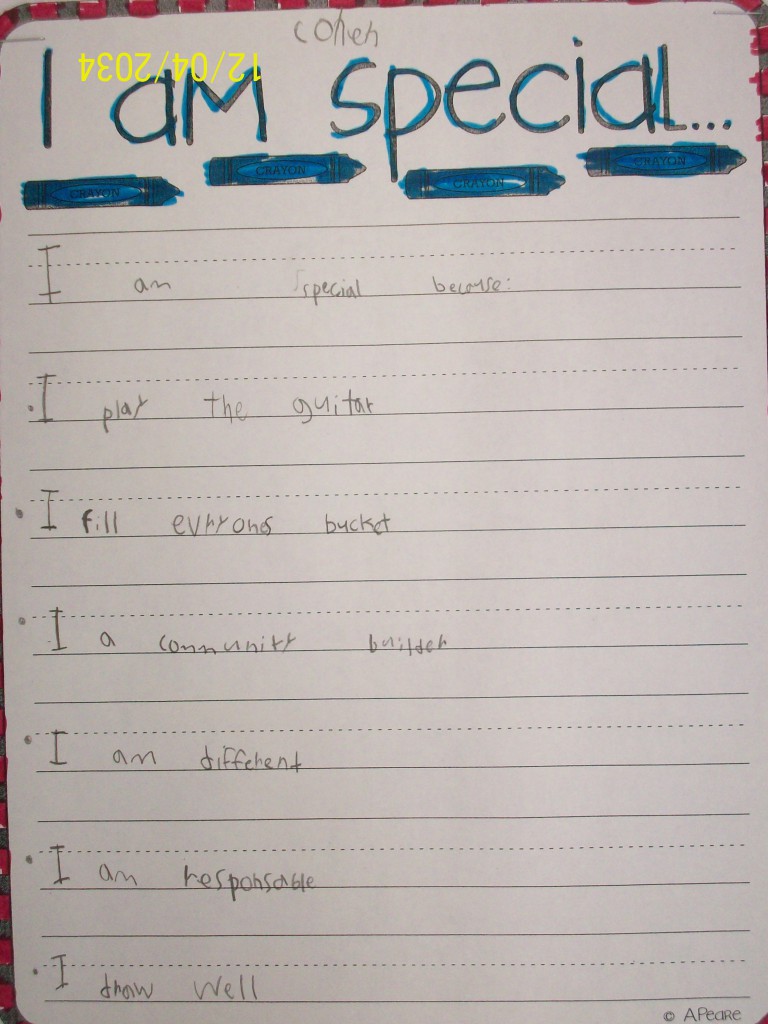 cohen
12/04/2034
I am special...
CRAYON CRAYON CRAYON CRAYON
I am special becouse:
• I play the guitar
• I fill evryones bucket
• I a community builder
• I am different
• I am responsable
• I draw well
© APeare